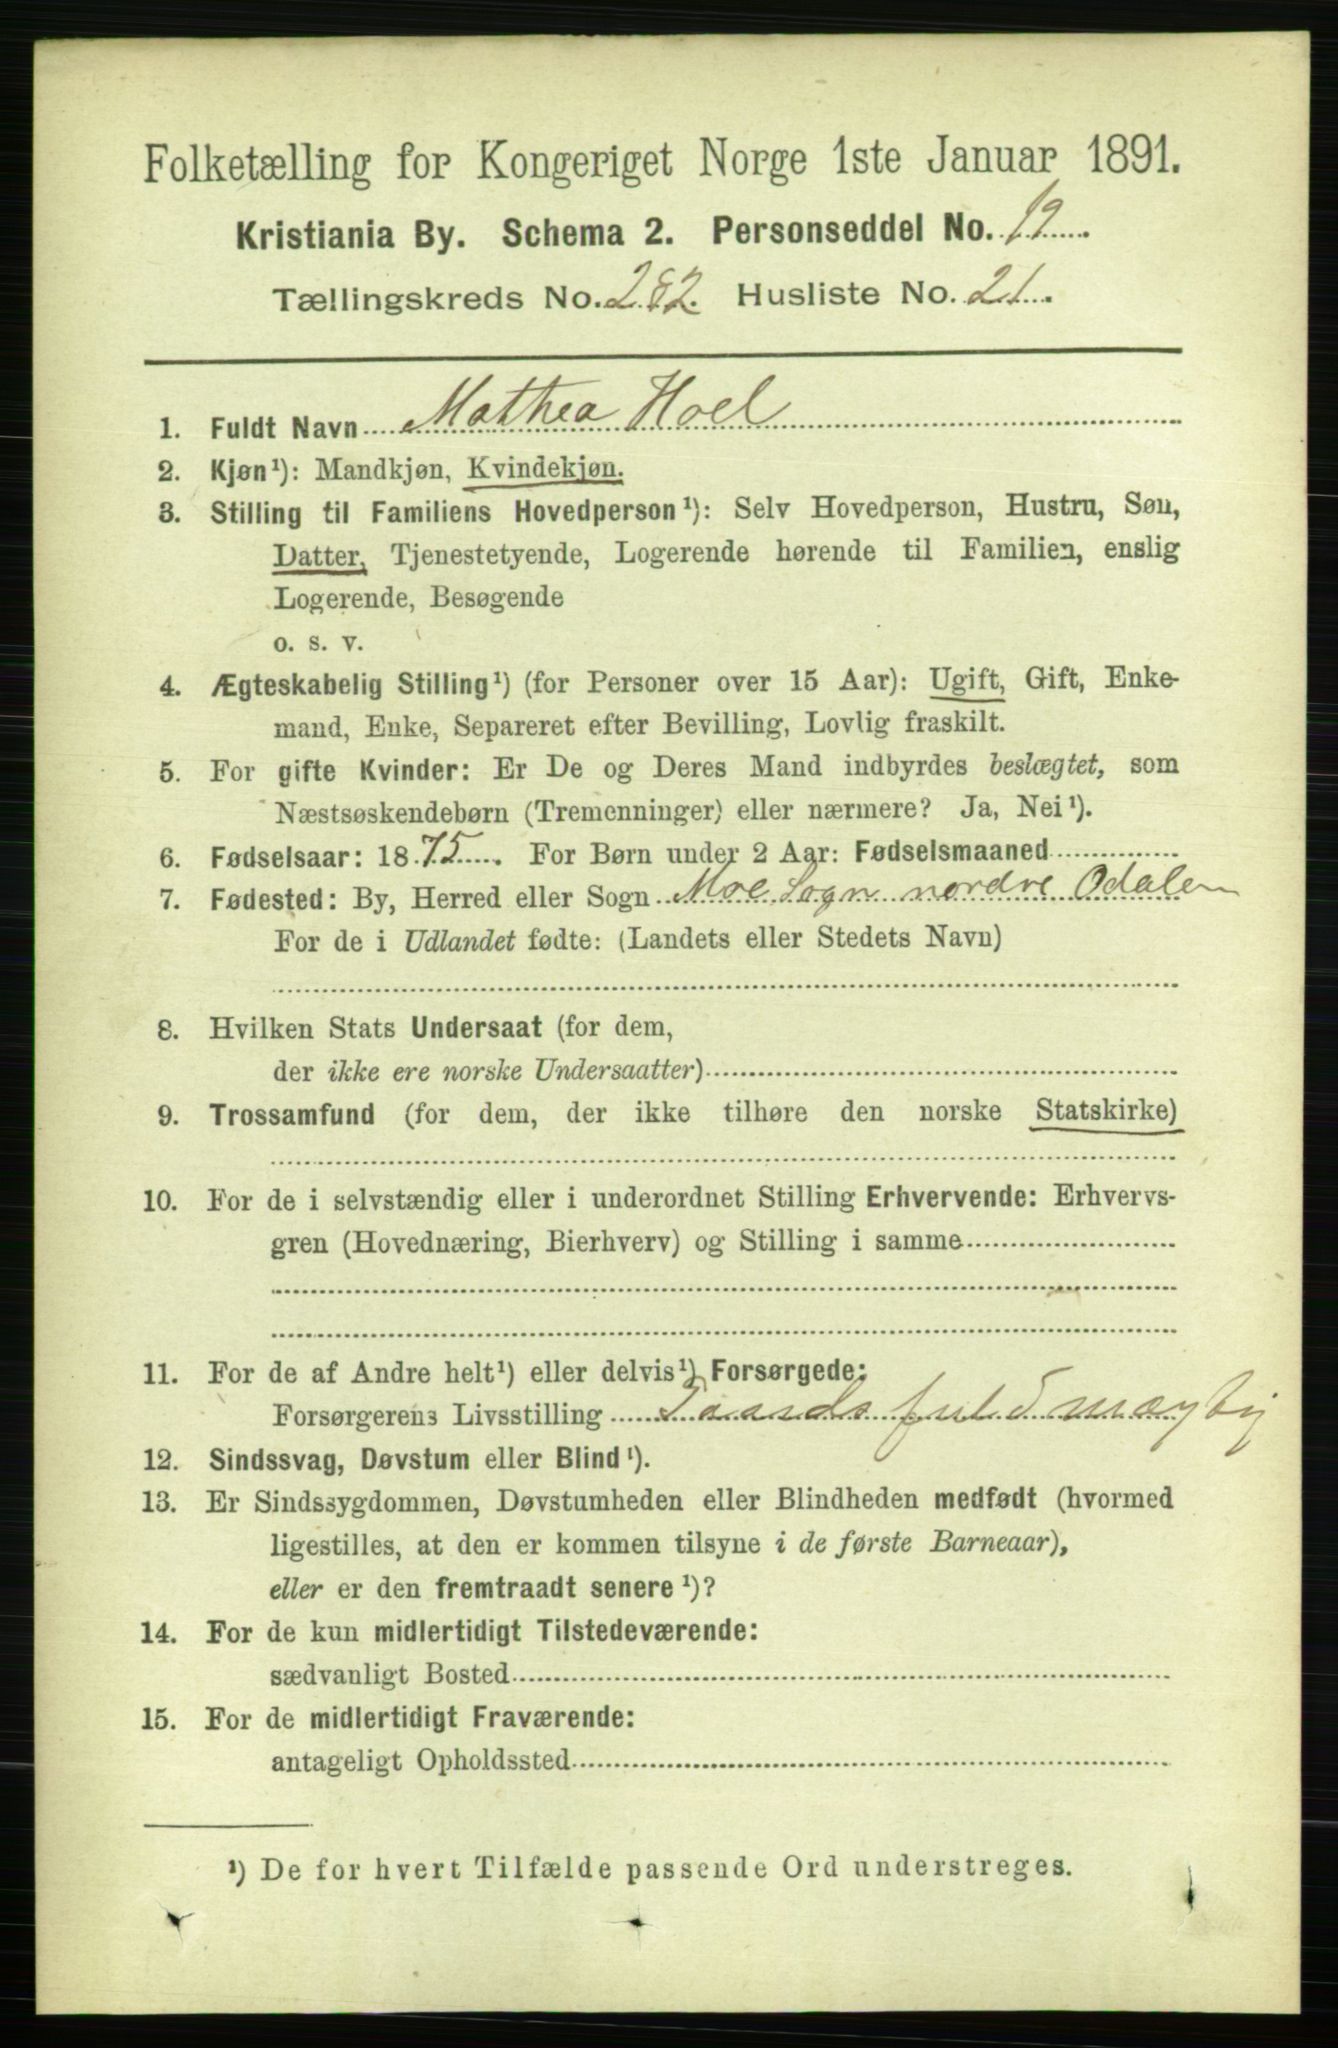 Folketælling for Kongeriget Norge 1ste Januar 1891.
Kristiania By. Schema 2. Personseddel No. 12
Tællingskreds No. 282. Husliste No. 21.
1. Fuldt Navn Mathea Hoel
2. Kjøn¹): Mandkjøn, Kvindekjøn.
3. Stilling til Familiens Hovedperson¹): Selv Hovedperson, Hustru, Søn,
Datter, Tjenestetyende, Logerende hørende til Familien, enslig
Logerende, Besøgende
o. s. v.
4. Ægteskabelig Stilling¹) (for Personer over 15 Aar): Ugift, Gift, Enke-
mand, Enke, Separeret efter Bevilling, Lovlig fraskilt.
5. For gifte Kvinder: Er De og Deres Mand indbyrdes beslægtet, som
Næstsøskendebørn (Tremenninger) eller nærmere? Ja, Nei¹).
6. Fødselsaar: 1875. For Børn under 2 Aar: Fødselsmaaned
7. Fødested: By, Herred eller Sogn Moe Sogn nordre Odalen
For de i Udlandet fødte: (Landets eller Stedets Navn)
8. Hvilken Stats Undersaat (for dem,
der ikke ere norske Undersaatter)
9. Trossamfund (for dem, der ikke tilhøre den norske Statskirke)
10. For de i selvstændig eller i underordnet Stilling Erhvervende: Erhvervs-
gren (Hovednæring, Bierhverv) og Stilling i samme
11. For de af Andre helt¹) eller delvis¹) Forsørgede:
Forsørgerens Livsstilling
12. Sindssvag, Døvstum eller Blind¹).
13. Er Sindssygdommen, Døvstumheden eller Blindheden medfødt (hvormed
ligestilles, at den er kommen tilsyne i de første Barneaar),
eller er den fremtraadt senere¹)?
14. For de kun midlertidigt Tilstedeværende:
sædvanligt Bosted
15. For de midlertidigt Fraværende:
antageligt Opholdssted
¹) De for hvert Tilfælde passende Ord understreges.